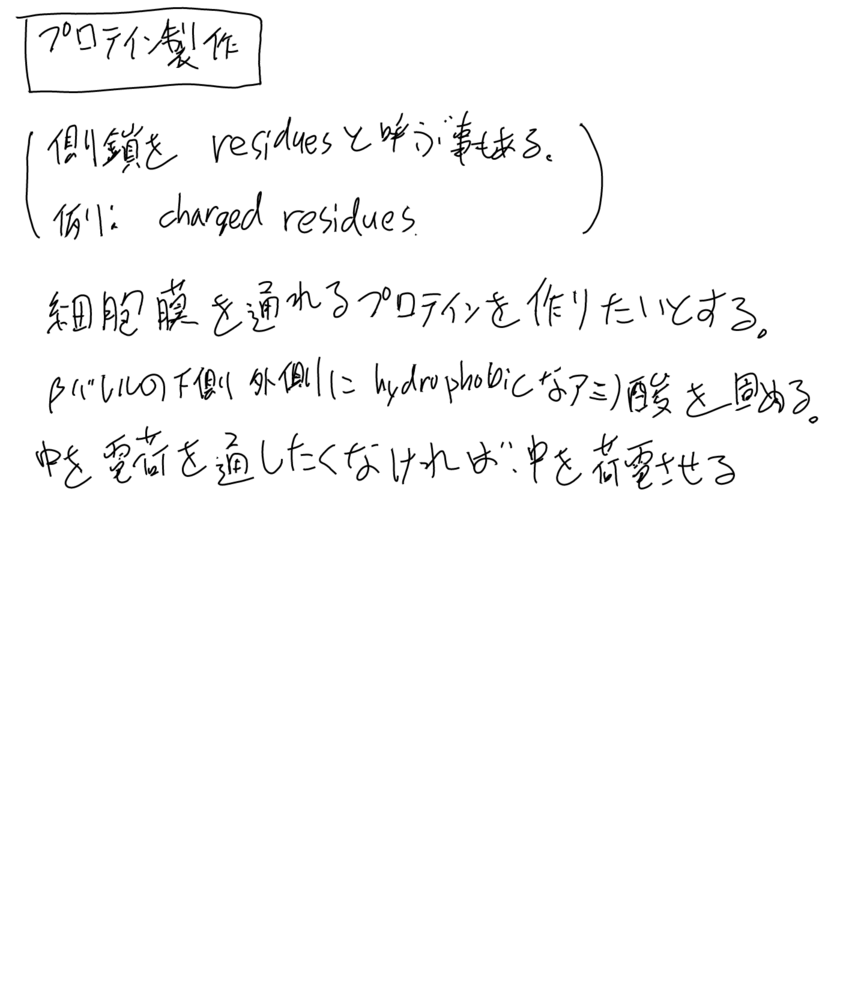 プロテイン製作
(側鎖を residuesと呼ぶ事もある。
例: charged residues.)
細胞膜を通れるプロテインを作りたいとする。
βバレルの下側外側にhydrophobicなアミノ酸を固める。
中を電荷を通したくなければ、中を荷電させる